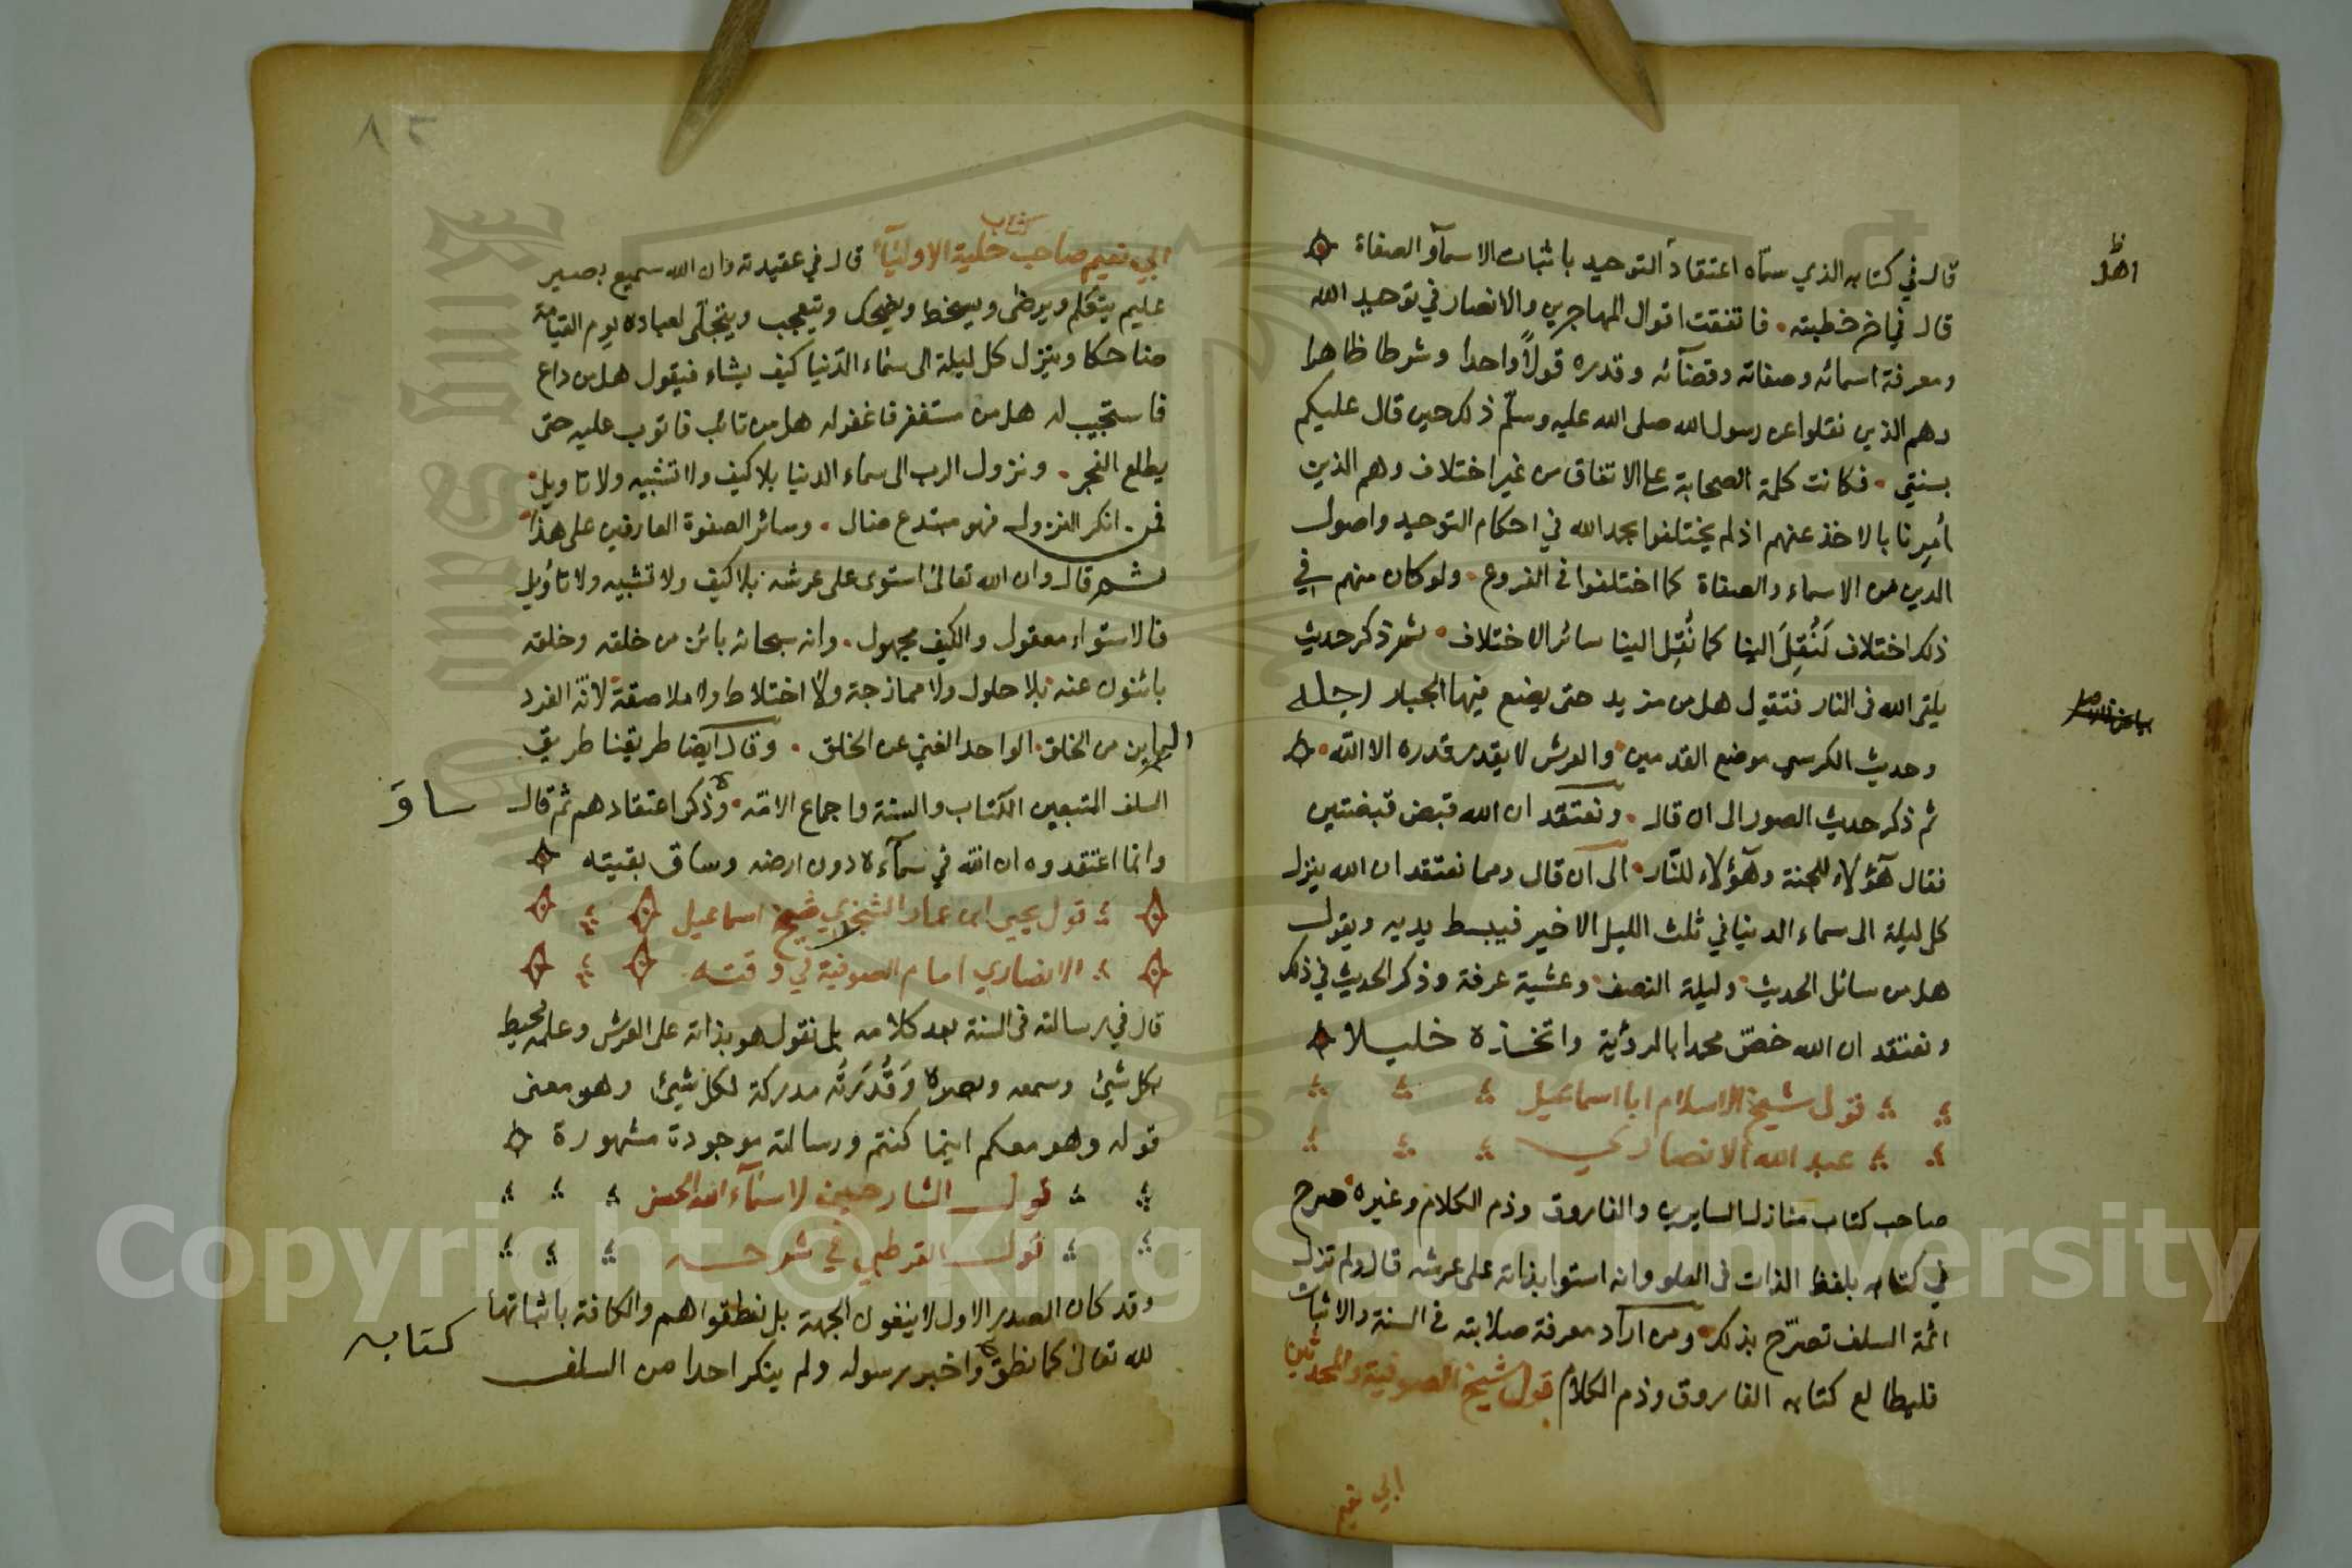 قال في كتابه الذي سمّاه اعتقاد التوحيد باثبات الاسمآء والصفاة
اهل
قال في اخر خطبته فاتفقت اقوال المهاجرين والانصار في توحيد الله
ومعرفة اسمائه وصفاته وقضآئه وقدره قولاً واحدا وشرطا ظاهرا
وهم الذين نقلوا عن رسول الله صلى الله عليه وسلّم ذلك حين قال عليكم
بسنتي فكانت كلمة الصحابة على الاتفاق من غير اختلاف وهم الذين
أُمِرنا بالاخذ عنهم اذ لم يختلفوا بحمد الله في احكام التوحيد واصول
الدين من الاسماء والصفاة كما اختلفوا في الفروع ولو كان منهم في
ذلك اختلاف لَنُقِلَ الينا كما نُقِل الينا سائر الاختلاف ثم ذكر حديث
يلقى الله في النار فتقول هل من مزيد حتى يضع فيها الجبار رجله
وحديث الكرسي موضع القدمين والعرش لا يقدر قدره الا الله
ثم ذكر حديث الصور الى ان قال ونعتقد ان الله قبض قبضتين
فقال هآؤلاء للجنة وهآؤلاء للنّار الى ان قال ومما نعتقد ان الله ينزل
كل ليلة الى سماء الدنيا في ثلث الليل الاخير فيبسط يديه ويقول
هل من سائل الحديث وليلة النصف وعشية عرفة وذكر الحديث في ذلك
ونعتقد ان الله خصّ محمدا بالرؤية واتخذه خليلا
قول شيخ الاسلام ابا اسماعيل
عبد الله الانصاري
صاحب كتاب منازل السايرين والفاروق وذم الكلام وغيره صرح
في كتابه بلفظ الذات في العلو وانه استوا بذاته على عرشه قال ولم تزل
ائمة السلف تصرّح بذلك ومن اراد معرفة صلابته في السنة والاثبات
فليطالع كتابه الفاروق وذم الكلام قول شيخ الصوفية والمحدثين
ابي نعيم
٨٢
كتاب
ابي نعيم صاحب حلية الاوليآء قال في عقيدته وان الله سميع بصير
عليم يتكلم ويرضى ويسخط ويضحك ويتعجب ويتجلّى لعباده يوم القيامة
ضاحكا وينزل كل ليلة الى سماء الدّنيا كيف يشاء فيقول هل من داع
فاستجيب له هل من مستغفر فاغفر له هل من تائب فاتوب عليه حتى
يطلع الفجر ونزول الرب الى سماء الدنيا بلا كيف ولا تشبيه ولا تاويل
فمن انكر النزول فهو مبتدع ضال وسائر الصفوة العارفين على هذا
ثم قال وان الله تعالى استوى على عرشه بلا كيف ولا تشبيه ولا تاؤيل
فالاستواء معقول والكيف مجهول وانه سبحانه بائن من خلقه وخلقه
بائنون عنه بلا حلول ولا ممازجة ولا اختلاط ولا ملاصقة لانّه الفرد
البائن من الخلق الواحد الغني عن الخلق وقال ايضا طريقنا طريق
السلف المتبعين الكتاب والسنة واجماع الامّة وذكر اعتقادهم ثم قال
ساقَ
وانما اعتقدوه ان الله في سمآءه دون ارضه وساق بقيته
قول يحيى ابن عمار الشجزي شيخ اسماعيل
الانصاري امام الصوفية في وقته
قال في رسالته في السنة بعد كلامه بل نقول هو بذاته على العرش وعلمه محيط
بكل شيئ وسمعه وبصره وَقُدْرَتُه مدركة لكل شيئ وهو معنى
قوله وهو معكم اينما كنتم ورسالته موجودة مشهورة
قول الشارحين لاسمآء الله الحسنى
قول القرطبي في شرحه
وقد كان الصدر الاول لا ينفون الجهة بل نطقوا هم والكافة باثباتها
لله تعالى كما نطق واخبر رسوله ولم ينكر احدا من السلف
كتابه
Copyright © King Saud University
1957